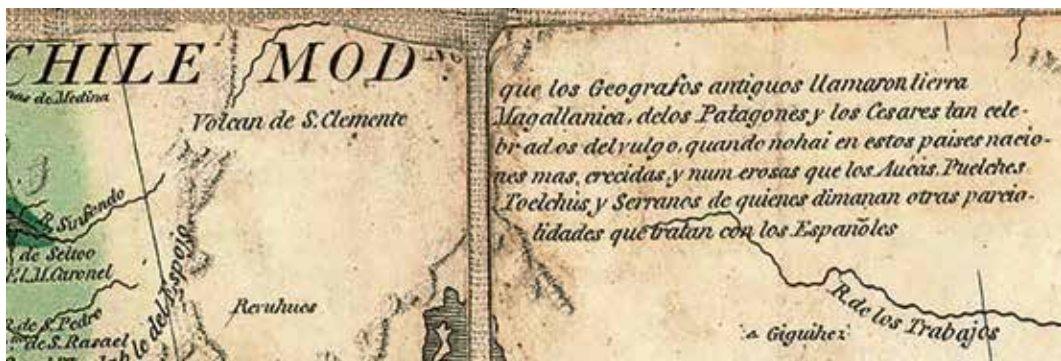 CHILE MOD.no
nas de Medina
Volcan de S. Clemente
R. Sinfondo
de Seltoo
E.L.M. Caronel
R. de S. Pedro
de S. Rasael
ble del Espejo
Reruhues
que los Geografos antiguos llamaron tierra
Magallanica, delos Patagones y los Cesares tan cele-
brados del vulgo, quando nohai en estos paises nacio-
nes mas, crecidas, y num erosas que los Aucás, Puelches
Toelchus y Serranos de quienes dimanan otras parcio-
lidades que tratan con los Españoles
R. de los Trabajos
Giguihez